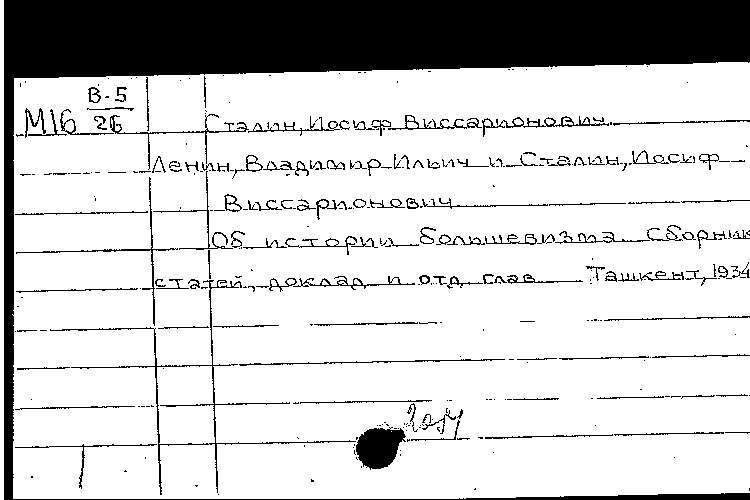 В-5
М16 26
Сталин, Иосиф Виссарионович.
Ленин, Владимир Ильич и Сталин, Иосиф
Виссарионович
Об истории большевизма. Сборник
статей, доклад и отд. глав Ташкент, 1934